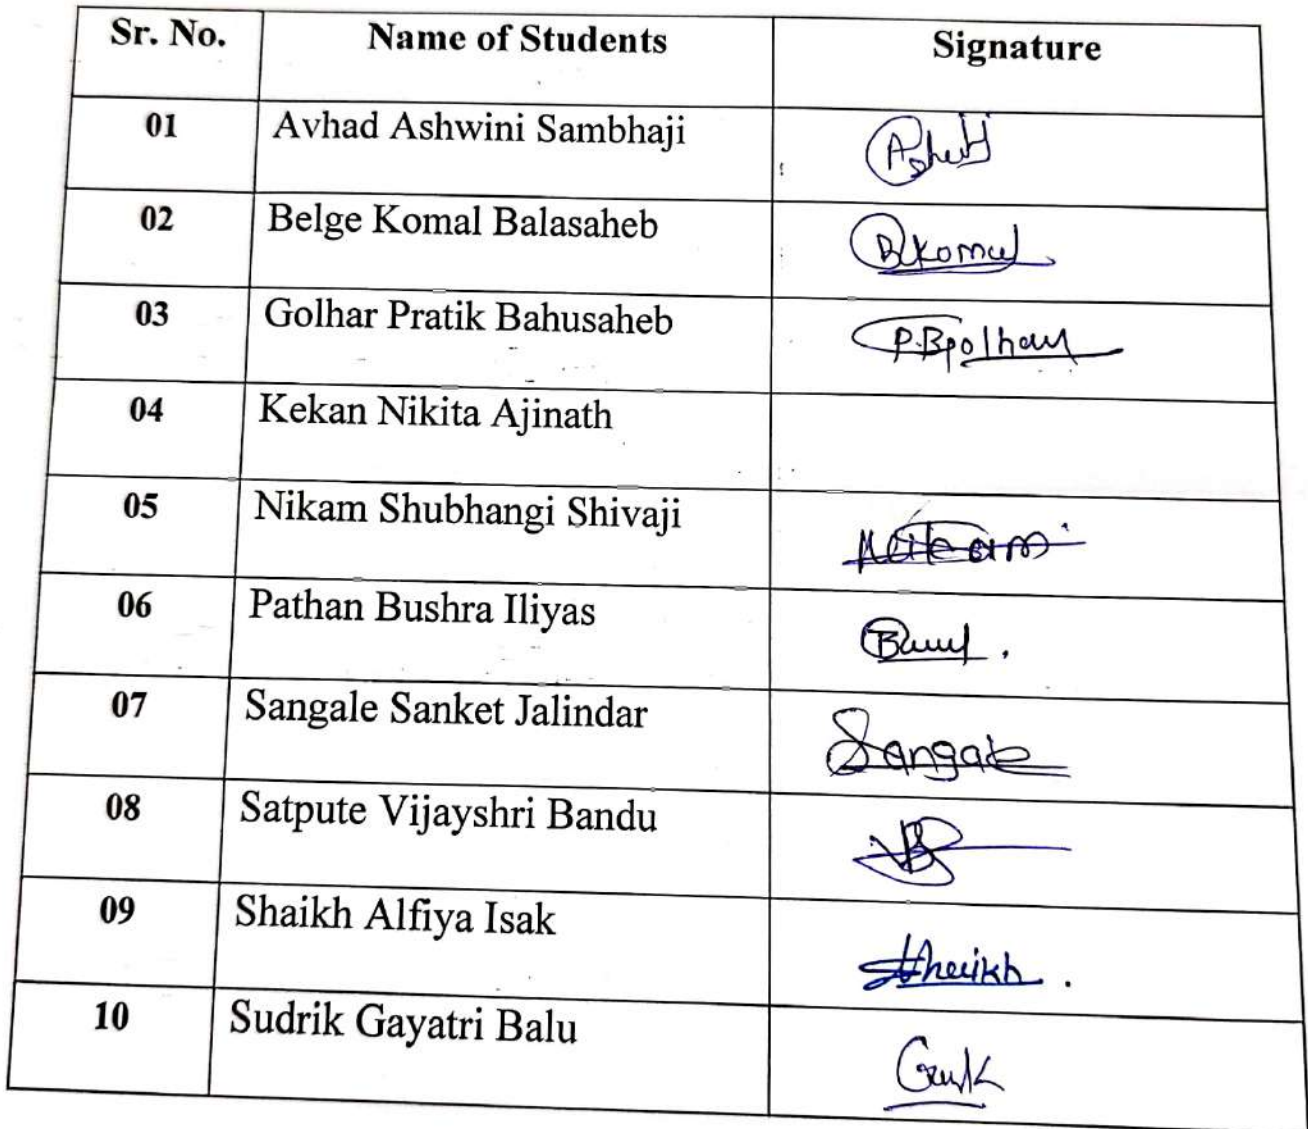 Sr. No. Name of Students Signature
01 Avhad Ashwini Sambhaji
02 Belge Komal Balasaheb BKomal
03 Golhar Pratik Bahusaheb
04 Kekan Nikita Ajinath
05 Nikam Shubhangi Shivaji Nikam
06 Pathan Bushra Iliyas
07 Sangale Sanket Jalindar Sangale
08 Satpute Vijayshri Bandu
09 Shaikh Alfiya Isak Shaikh
10 Sudrik Gayatri Balu